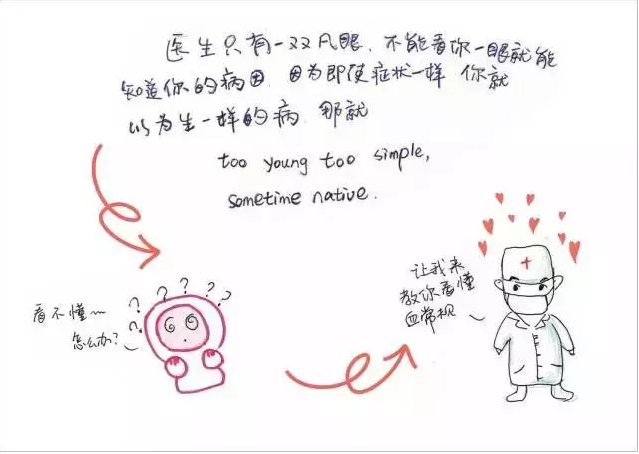 医生只有一双凡眼、不能看你一眼就能
知道你的病因、因为即使症状一样 你就
以为生一样的病、那就
too young too simple,
sometime native.
看不懂~
怎么办?
? ? ? ? ? ?
让我来
教你看懂
血常规